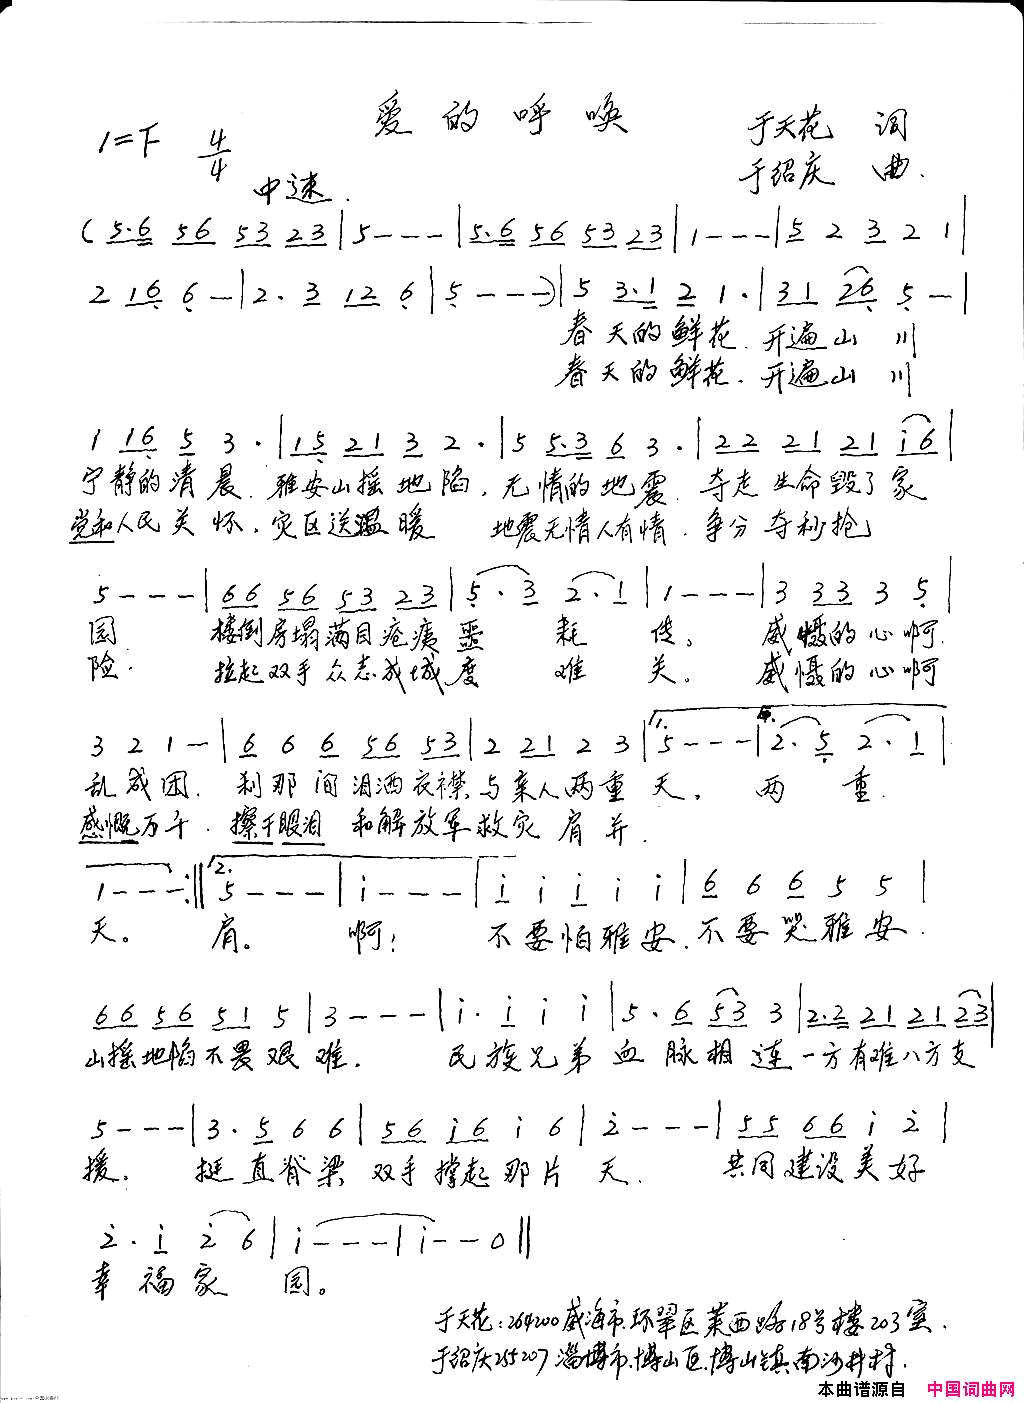 爱的呼唤
1=F 4/4 于天花 词
中速. 于绍庆 曲.
(5·6 56 53 23|5---|5·6 56 53 23|1---|5 2 3 2 1|
2 16 6-|2·3 12 6|5---)|5 3·1 2 1·|31 26 5-|
春天的鲜花.开遍山川
春天的鲜花.开遍山川
1 16 5 3·|15 21 3 2·|5 5·3 6 3·|22 21 21 i6|
宁静的清晨.雅安山摇地陷.无情的地震.夺走生命毁了家
党和人民关怀.灾区送温暖 地震无情人有情.争分夺秒抢
5---|66 56 53 23|5·3 2·1|1---|3 33 3 5|
园 楼倒房塌满目疮痍噩耗传。威慑的心啊.
险. 拉起双手众志成城度难关。威慑的心啊
3 2 1-|6 6 6 56 53|2 21 2 3|1.5---|2·5 2·1|
乱成团.刹那间泪洒衣襟与亲人两重天.两重.
感慨万千.擦干眼泪 和解放军救灾肩并.
1---:‖2.5---|i---|i i i i i|6 6 6 5 5|
天。肩。啊!不要怕雅安.不要哭雅安.
66 56 51 5|3---|i·i i i|5·6 53 3|2·2 21 21 23|
山摇地陷不畏艰难.民族兄弟血脉相连一方有难八方支
5---|3·5 6 6|56 i6 i 6|2---|55 66 i 2|
援.挺直脊梁双手撑起那片天.共同建设美好
2·i 2 6|i---|i--0‖
幸福家园。
于天花:264200威海市.环翠区莱西路18号楼203室.
于绍庆255207淄博市.博山区.博山镇南沙井村.
本曲谱源自 中国词曲网